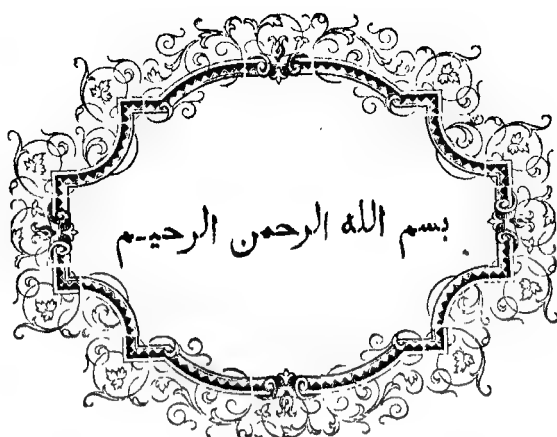 بسم الله الرحمن الرحيـم